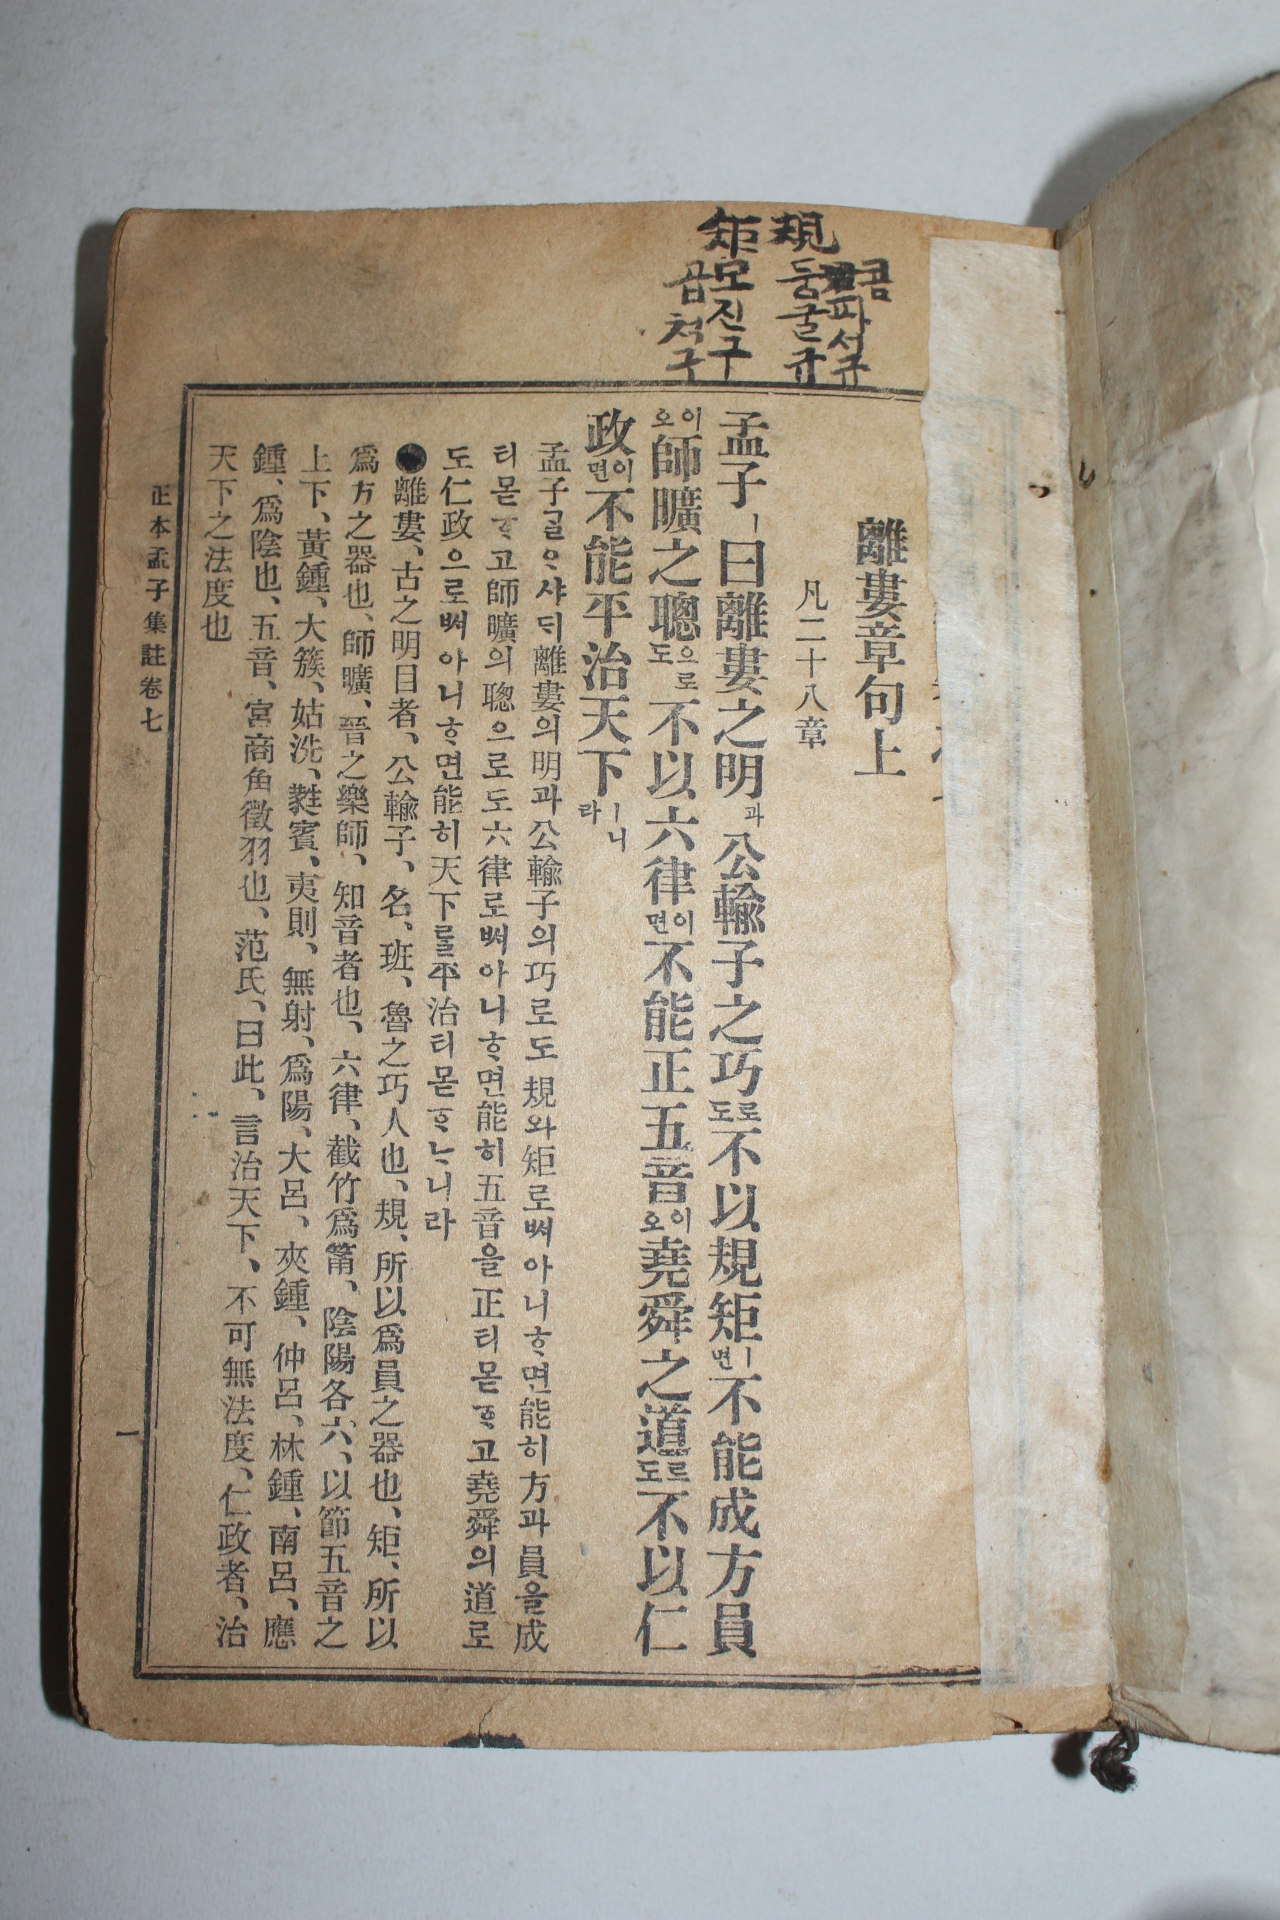 規
콤파서규
둥굴규
矩
모진구
곱척구
離婁章句上
凡二十八章
孟子ㅣ曰離婁之明과公輸子之巧로도不以規矩ㅣ면不能成方員
이오師曠之聰으로도不以六律이면不能正五音이오堯舜之道로도不以仁
政이면不能平治天下ㅣ니라
孟子ᄀᆞᆯᄋᆞ샤ᄃᆡ離婁의明과公輸子의巧로도規와矩로ᄡᅥ아니ᄒᆞ면能히方과員을成
티몯ᄒᆞ고師曠의聰으로도六律로ᄡᅥ아니ᄒᆞ면能히五音을正티몯ᄒᆞ고堯舜의道로
도仁政으로ᄡᅥ아니ᄒᆞ면能히天下ᄅᆞᆯ平治티몯ᄒᆞᄂᆞ니라
●離婁、古之明目者、公輸子、名、班、魯之巧人也、規、所以爲員之器也、矩、所以
爲方之器也、師曠、晉之樂師、知音者也、六律、截竹爲筩、陰陽各六、以節五音之
上下、黃鍾、大簇、姑洗、蕤賓、夷則、無射、爲陽、大呂、夾鍾、仲呂、林鍾、南呂、應
鍾、爲陰也、五音、宮商角徵羽也、范氏、曰此、言治天下、不可無法度、仁政者、治
天下之法度也
正本孟子集註卷七
一